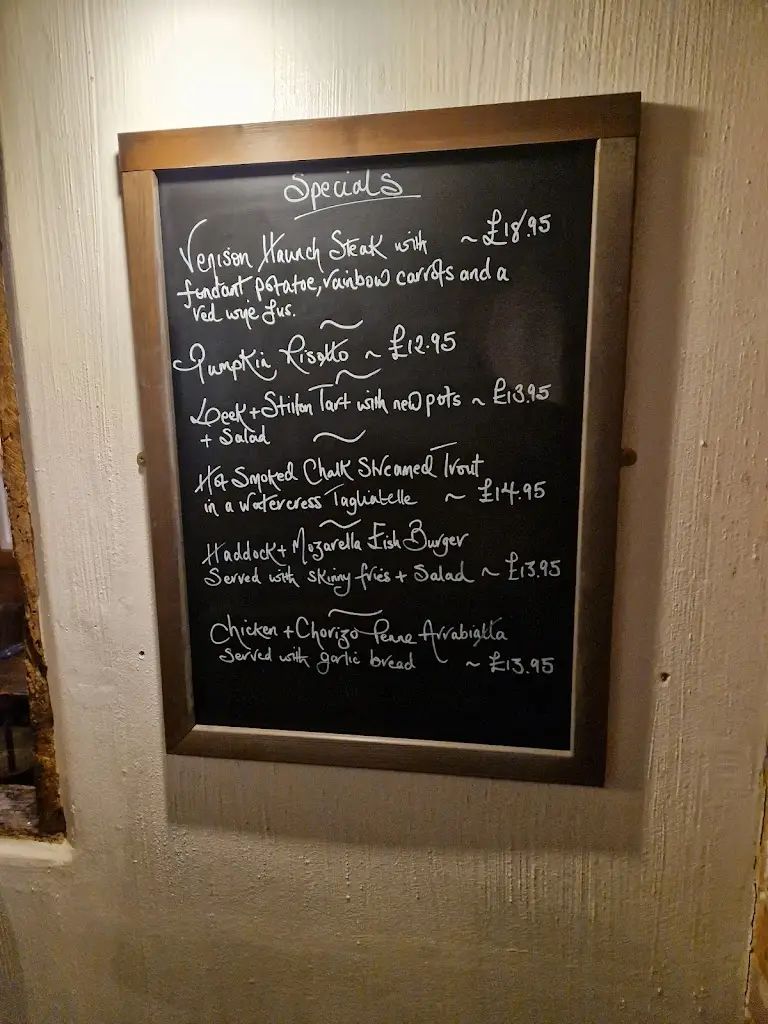 Specials
Venison Haunch Steak with ~ £18.95
fondant potatoe, rainbow carrots and a
red wine Jus.
~
Pumpkin Risotto ~ £12.95
~
Leek + Stilton Tart with new pots ~ £13.95
+ Salad
~
Hot Smoked Chalk Streamed Trout
in a watercress Tagliatelle ~ £14.95
~
Haddock + Mozarella Fish Burger
Served with skinny fries + Salad ~ £13.95
~
Chicken + Chorizo Penne Arrabiatta
Served with garlic bread ~ £13.95